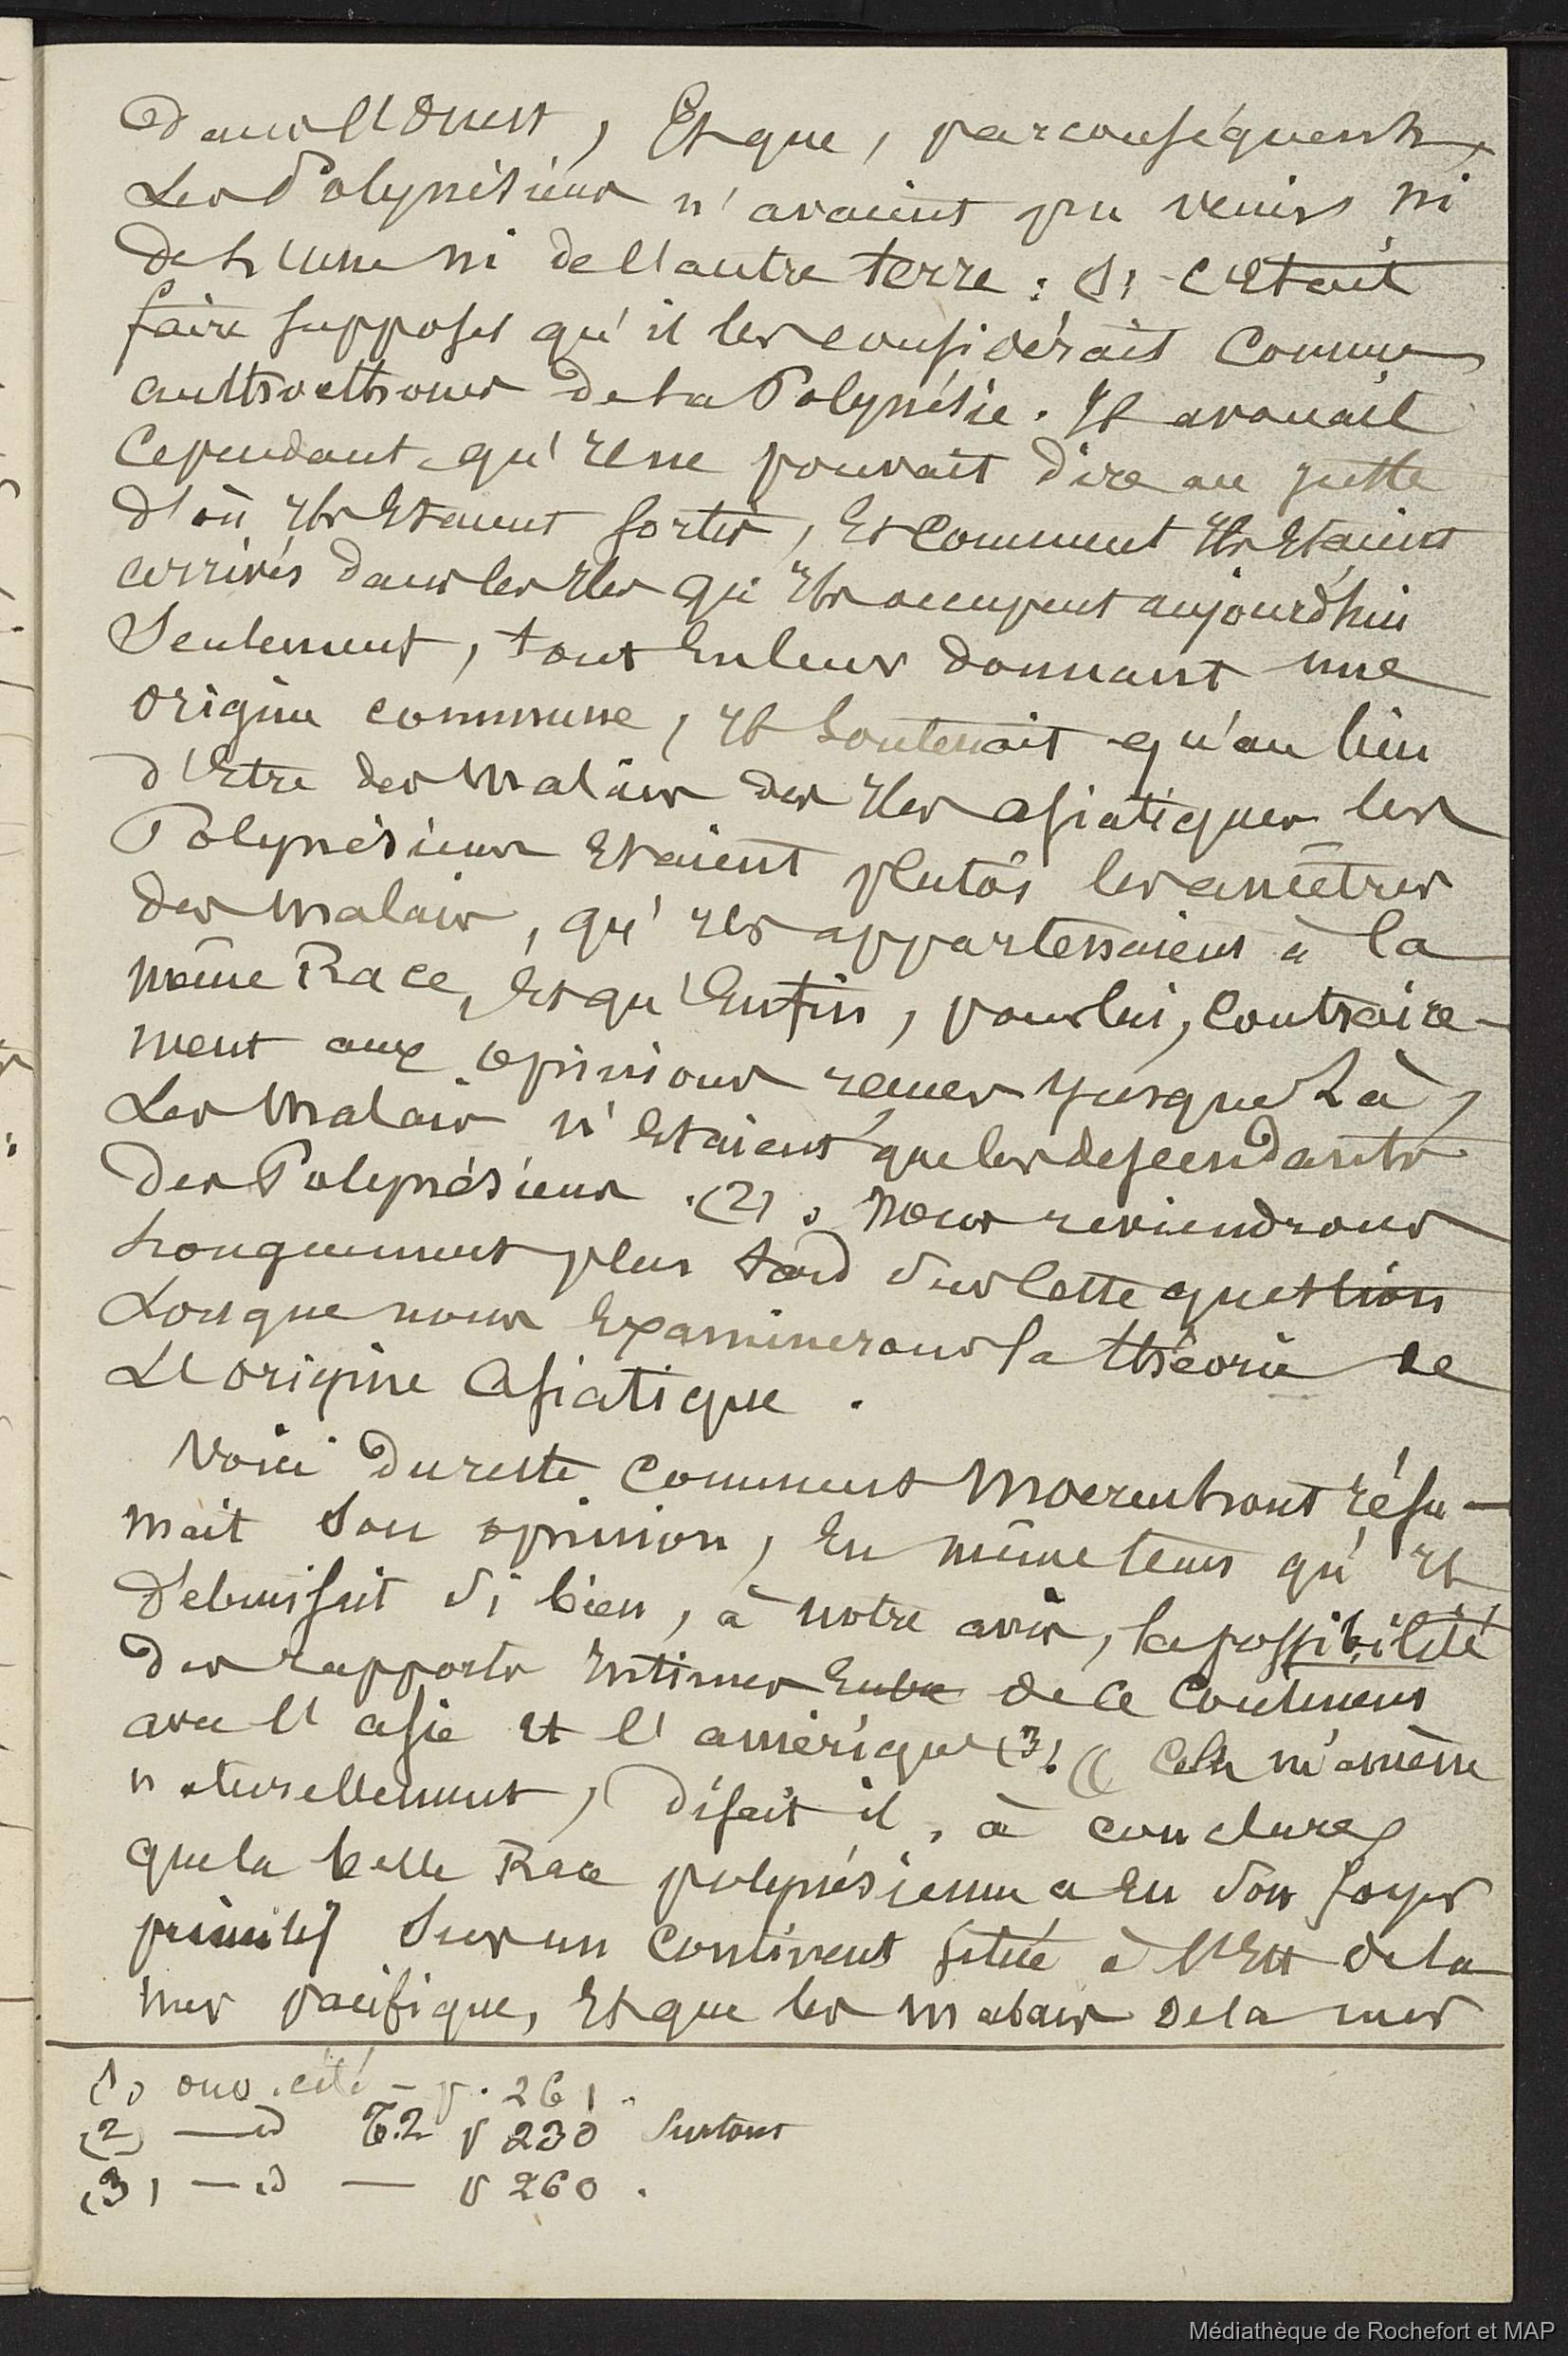 dans l'Ouest, Et que, par conséquent,
Les Polynésiens n'avaient pu venir ni
de L'une ni de l'autre terre : (1) c'Etait
faire supposer qu'il les considérait Comme
authoctones de la Polynésie. Il avouait
Cependant qu'il ne pouvait dire au juste
d'où Ils Etaient sortis, Et Comment Ils Etaient
arrivés dans les Iles qu'Ils occupent aujourd'hui
Seulement, tout En leur donnant une
origine commune, Il Soutenait qu'au lieu
d'Etre des Malais des Iles asiatiques les
Polynésiens Etaient plutôt les ancêtres
des Malais, qu'Ils appartenaient à la
même Race, Et qu'Enfin, pour lui, Contraire-
ment aux opinions reçues jusque Là,
Les Malais n'Etaient que les descendants
des Polynésiens .(2). Nous reviendrons
Longuement plus tard sur Cette question
Lorsque nous Examinerons la théorie de
L'origine Asiatique.
Voici du reste Comment Moerenhout résu-
mait Son opinion, En même tems qu'Il
définissait Si bien, à notre avis, la possibilité
des rapports Intimes Entre de ce Continent
avec l'asie Et l'amérique (3). « Cela m'amène
naturellement, disait il, à conclure
que la belle Race polynésienne a Eu Son foyer
primitif Sur un Continent situé à l'Est de la
mer pacifique, Et que les malais de la mer
(1) ouv. cité - p. 261.
(2) — id T.2 p 230 Surtout
(3) — id — p 260.
Médiathèque de Rochefort et MAP